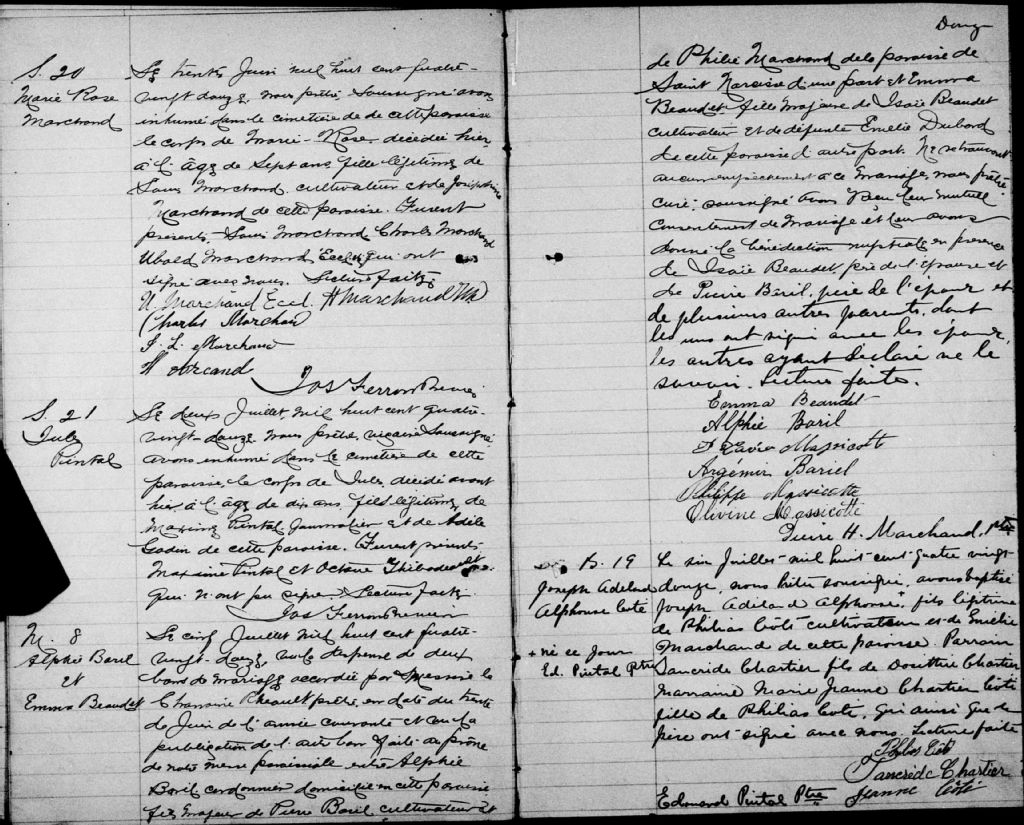 S. 20
Marie Rose
Marchand
Le trente Juin mil huit cent quatre-
vingt douze, nous prêtre, soussigné avons
inhumé dans le cimetière de cette paroisse
le corps de Marie-Rose, décédée hier,
à l'âge de Sept ans, fille légitime de
Louis Marchand, cultivateur et de Joséphine
Marchand de cette paroisse. Furent
présents, Louis Marchand Charles Marchand
Ubald Marchand, Eccl. qui ont
signé avec nous. Lecture faite
U. Marchand Eccl. H Marchand
Charles Marchan
J. L. Marchand
H Arcand
Jos Ferron
S. 21
Jules
Pintal
Le deux Juillet, mil huit cent quatre-
vingt-douze, nous prêtre, vicaire soussigné
avons inhumé dans le cimetière de cette
paroisse, le corps de Jules, décédé avant
hier, à l'âge de dix ans, fils légitime de
Maxime Pintal, journalier et de Adèle
Godin de cette paroisse. Furent présents
Maxime Pintal et Octave Thibodeault
qui n'ont pu signer. Lecture faite
Jos Ferron
M. 8
Alphée Baril
et
Emma Beaudet
Le cinq Juillet mil huit cent quatre-
vingt-douze, vu la dispense de deux
bans de mariage accordée par Messire le
Chanoine Rheault prêtre, en date du trente
de Juin de l'année courante et vu la
publication de l'autre ban faite au prône
de notre messe paroissiale entre Alphée
Baril cordonnier domicilié en cette paroisse
fils majeur de Pierre Baril cultivateur et
Douze
de Philie Marchand de la paroisse de
Saint Narcisse d'une part et Emma
Beaudet fille majeure de Isaïe Beaudet
cultivateur et de défunte Emélie Dubord
de cette paroisse d'autre part. Ne se trouvant
aucun empêchement à ce mariage, nous prêtre
curé, soussigné avons reçu leur mutuel
consentement de mariage et leur avons
donné la bénédiction nuptiale en présence
de Isaïe Beaudet, père de l'épouse et
de Pierre Baril, père de l'époux et
de plusieurs autres parents, dont
les uns ont signé avec les époux,
les autres ayant déclaré ne le
savoir. Lecture faite.
Emma Beaudet
Alphée Baril
Massicott
Argémir Bariel
Philippe Massicotte
Olivine Massicotte
Pierre H. Marchand, Ptre
B. 19
Joseph Adelard
Alphonse Coté
+ né ce jour
Ed. Pintal Ptre
Le six Juillet mil huit cent quatre vingt
douze, nous prêtre soussigné, avons baptisé
Joseph Adelard Alphonse,+ fils légitime
de Philias Côté cultivateur et de Emélie
Marchand de cette paroisse. Parrain
Tancride Chartier fils de Dosithée Chartier
Marraine Marie Jeanne Chartier Côté
fille de Philias Coté, qui ainsi que le
père ont signé avec nous. Lecture faite
Coté
Tancride Chartier
Jeanne Côté
Edouard Pintal Ptre